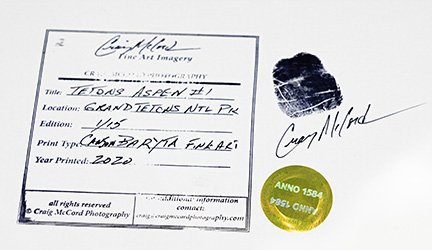 Craig McCord
Fine Art Imagery
CRAIG McCORD PHOTOGRAPHY
Title: TETONS ASPEN #1
Location: GRAND TETONS NTL PK
Edition: 1/15
Print Type: CANSON BARYTA FINE ART
Year Printed: 2020
all rights reserved
© Craig McCord Photography
additional information
contact:
craig@craigmccordphotography.com
Craig McCord
ANNO 1584
ANNO 1584